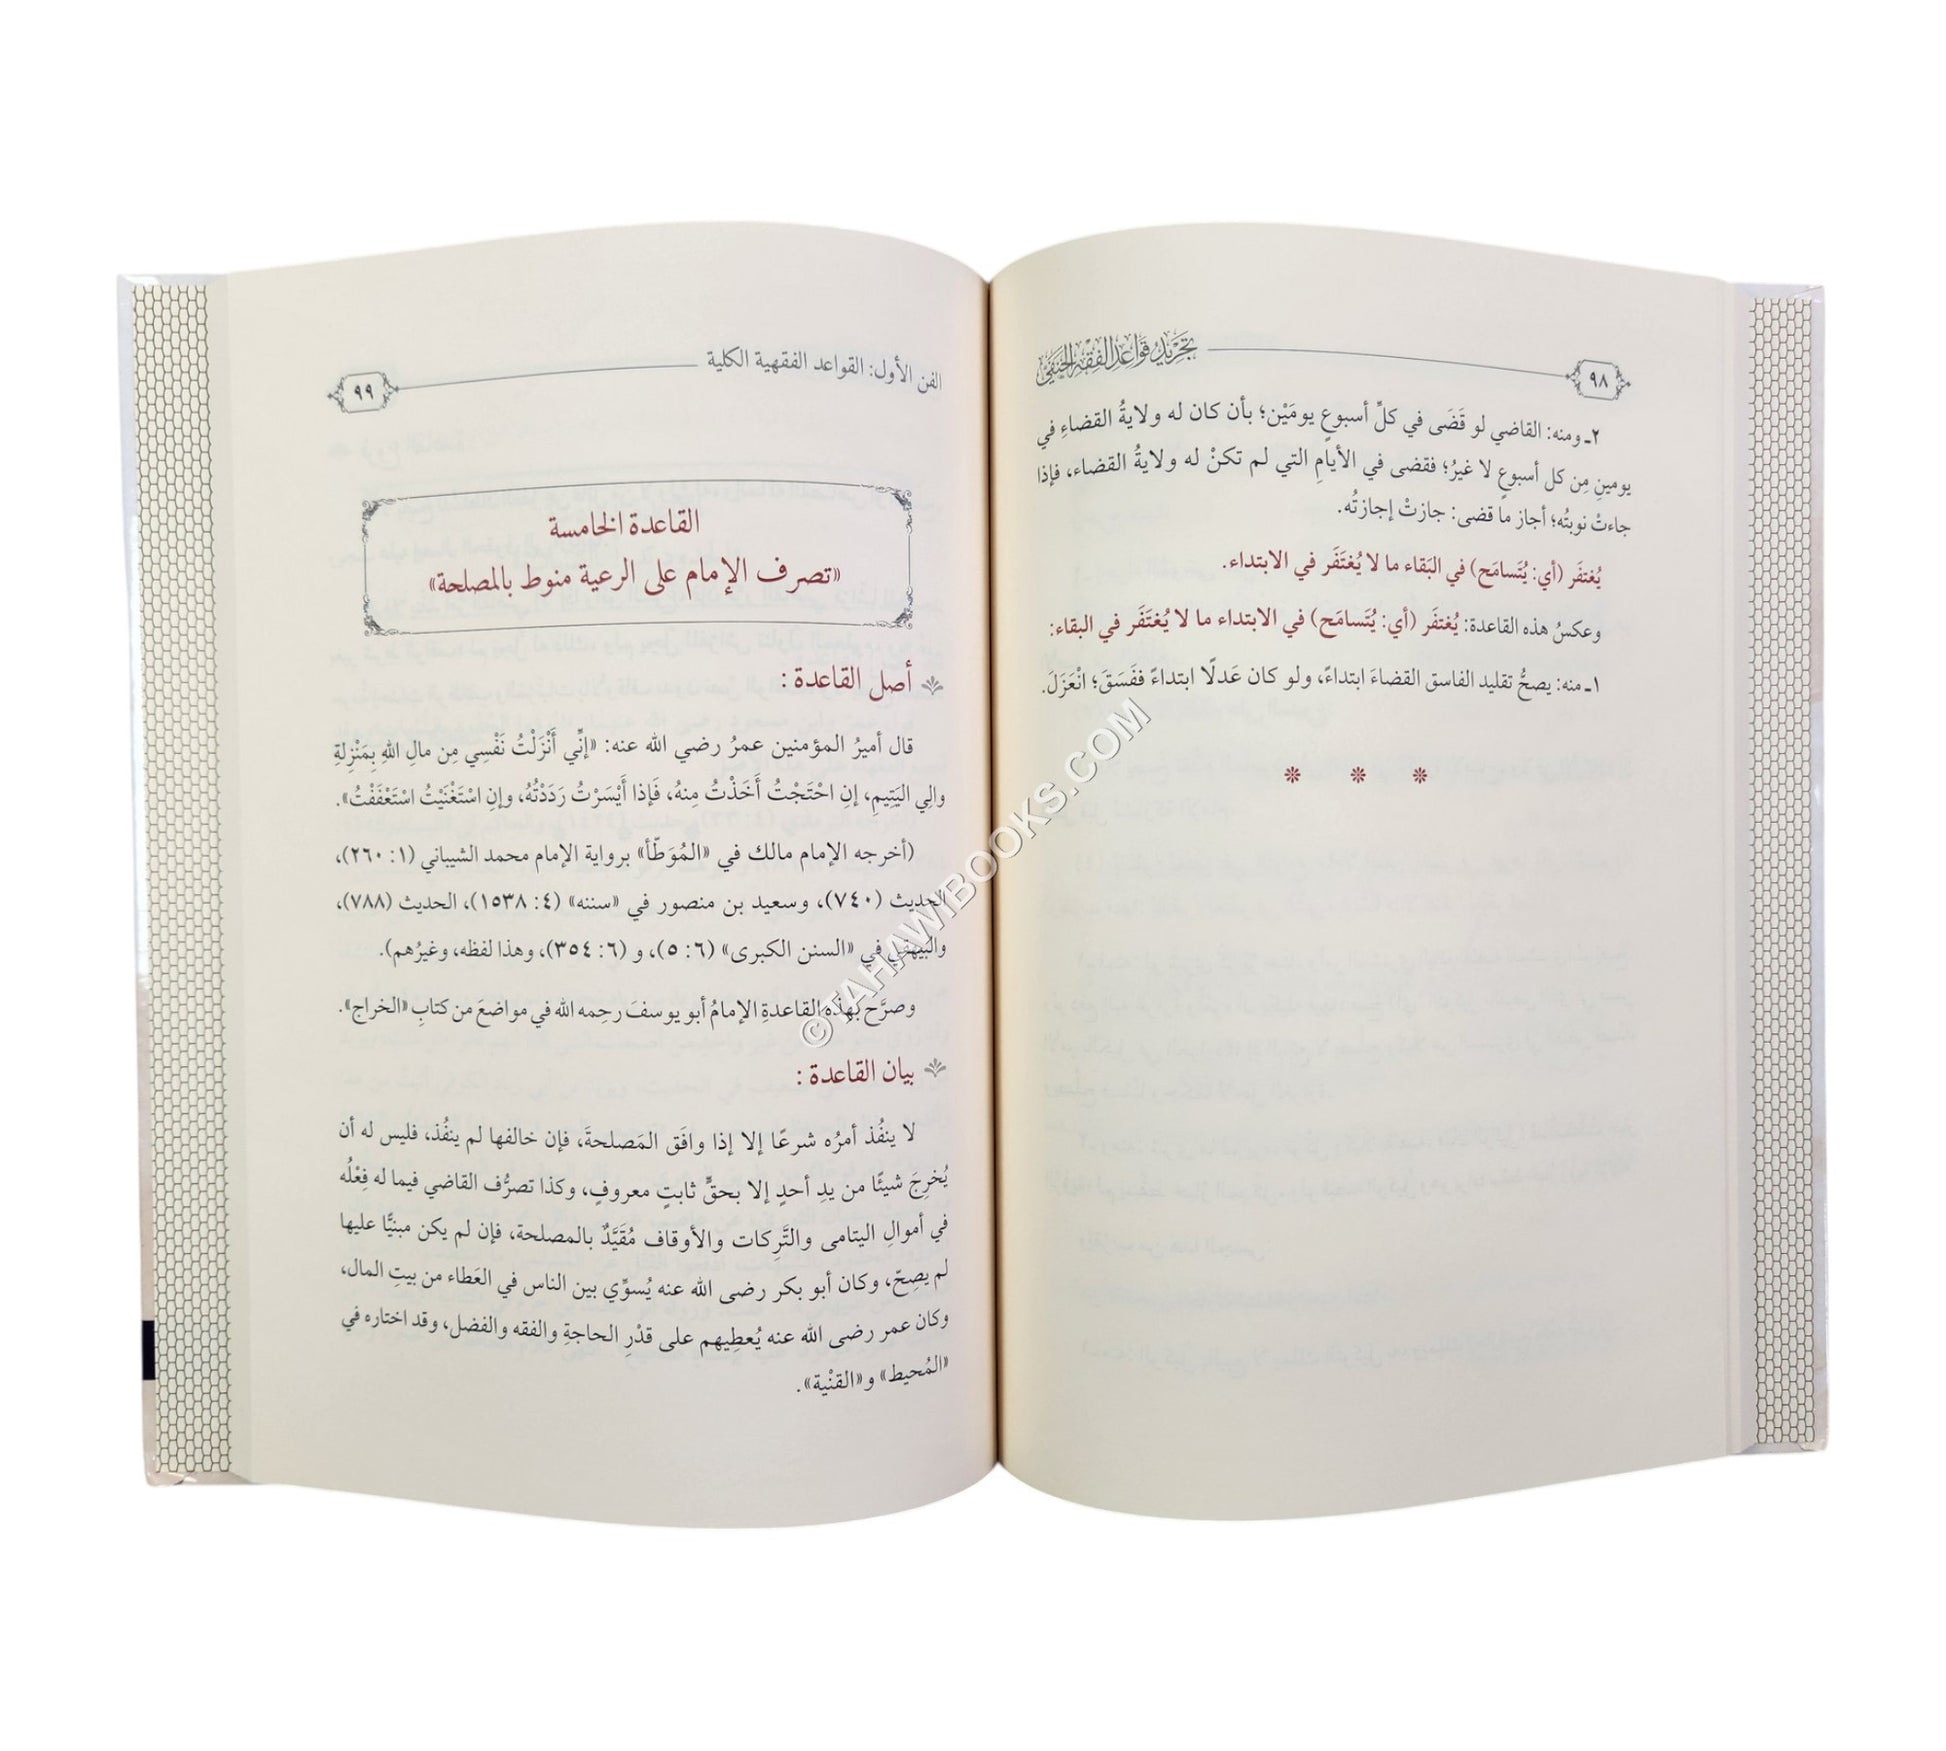 ٩٨
تجريد قواعد الفقه الحنفي
٢ـ ومنه: القاضي لو قَضَى في كلِّ أسبوعٍ يومَيْن؛ بأن كان له ولايةُ القضاءِ في
يومينِ مِن كل أسبوعٍ لا غيرُ؛ فقضى في الأيامِ التي لم تكنْ له ولايةُ القضاء، فإذا
جاءتْ نوبتُه؛ أجاز ما قضى: جازتْ إجازتُه.
يُغتفَر (أي: يُتَسامَح) في البَقاء ما لا يُغتَفَر في الابتداء.
وعكسُ هذه القاعدة: يُغتفَر (أي: يُتَسامَح) في الابتداء ما لا يُغتَفَر في البقاء:
١ـ منه: يصحُّ تقليد الفاسق القضاءَ ابتداءً، ولو كان عَدلًا ابتداءً ففَسَقَ؛ انْعَزَلَ.
الفن الأول: القواعد الفقهية الكلية
٩٩
القاعدة الخامسة
«تصرف الإمام على الرعية منوط بالمصلحة»
أصل القاعدة :
قال أميرُ المؤمنين عمرُ رضي الله عنه: «إنِّي أَنْزَلْتُ نَفْسِي مِن مالِ اللهِ بِمَنْزِلةِ
والِي اليَتِيمِ، إنِ احْتَجْتُ أَخَذْتُ مِنهُ، فَإذا أَيْسَرْتُ رَدَدْتُهُ، وإنِ اسْتَغْنَيْتُ اسْتَعْفَفْتُ».
(أخرجه الإمام مالك في «المُوَطّأ» برواية الإمام محمد الشيباني (١: ٢٦٠)،
الحديث (٧٤٠)، وسعيد بن منصور في «سننه» (٤: ١٥٣٨)، الحديث (٧٨٨)،
والبيهقي في «السنن الكبرى» (٦: ٥)، و (٦: ٣٥٤)، وهذا لفظه، وغيرُهم).
وصرَّح بهذه القاعدةِ الإمامُ أبو يوسفَ رحِمه الله في مواضعَ من كتابِ «الخراج».
بيان القاعدة :
لا ينفُذ أمرُه شرعًا إلا إذا وافَق المَصلحةَ، فإن خالفها لم ينفُذ، فليس له أن
يُخرِجَ شيئًا من يدِ أحدٍ إلا بحقٍّ ثابتٍ معروفٍ، وكذا تصرُّف القاضي فيما له فِعْلُه
في أموالِ اليتامى والتَّرِكات والأوقاف مُقَيَّدٌ بالمصلحة، فإن لم يكن مبنيًّا عليها
لم يصِحّ، وكان أبو بكر رضى الله عنه يُسوِّي بين الناس في العَطاء من بيتِ المال،
وكان عمر رضى الله عنه يُعطِيهم على قدْرِ الحاجةِ والفقه والفضل، وقد اختاره في
«المُحيط» و«القنْية».
©TAHAWIBOOKS.COM